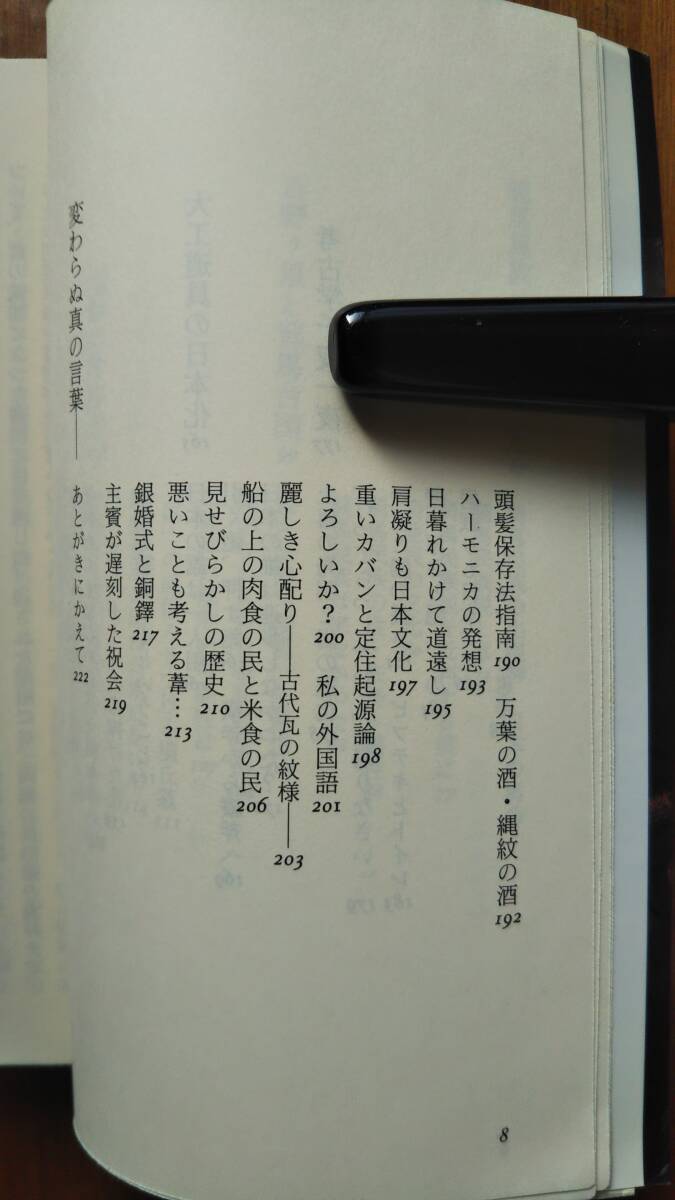 頭髪保存法指南190　万葉の酒・縄紋の酒192
ハーモニカの発想193
日暮れかけて道遠し195
肩凝りも日本文化197
重いカバンと定住起源論198
よろしいか？200　私の外国語201
麗しき心配り――古代瓦の紋様――203
船の上の肉食の民と米食の民206
見せびらかしの歴史210
悪いことも考える葦…213
銀婚式と銅鐸217
主賓が遅刻した祝会219
変わらぬ真の言葉――あとがきにかえて222
8